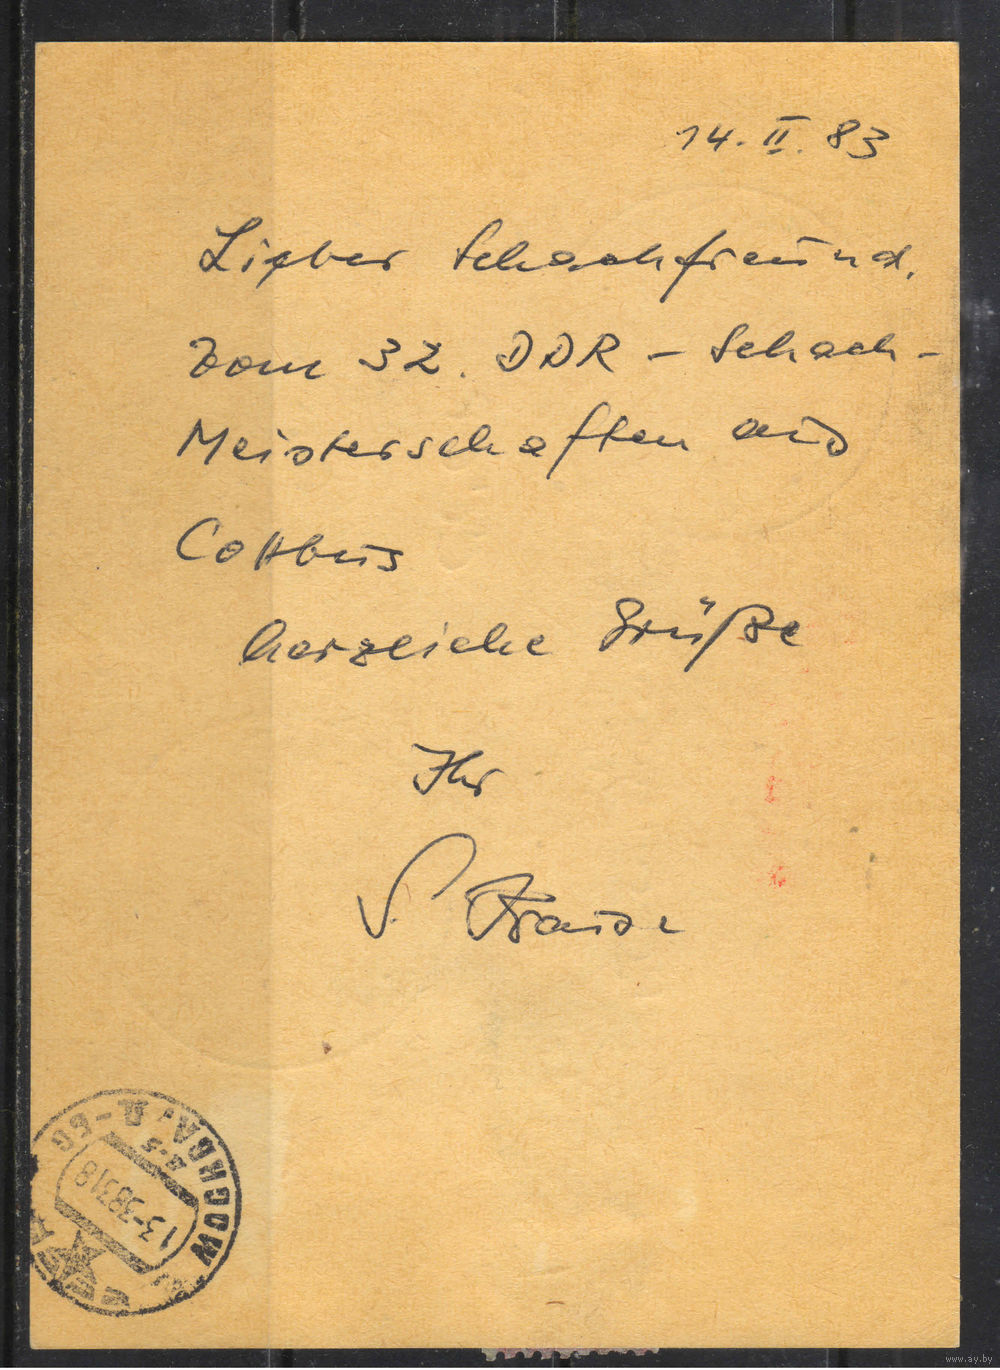 14. II. 83
Lieber Schachfreund,
Vom 32. DDR - Schach-
Meisterschaften aus
Cottbus
herzliche Grüße
Ihr
МОСКВА,
www.ay.by